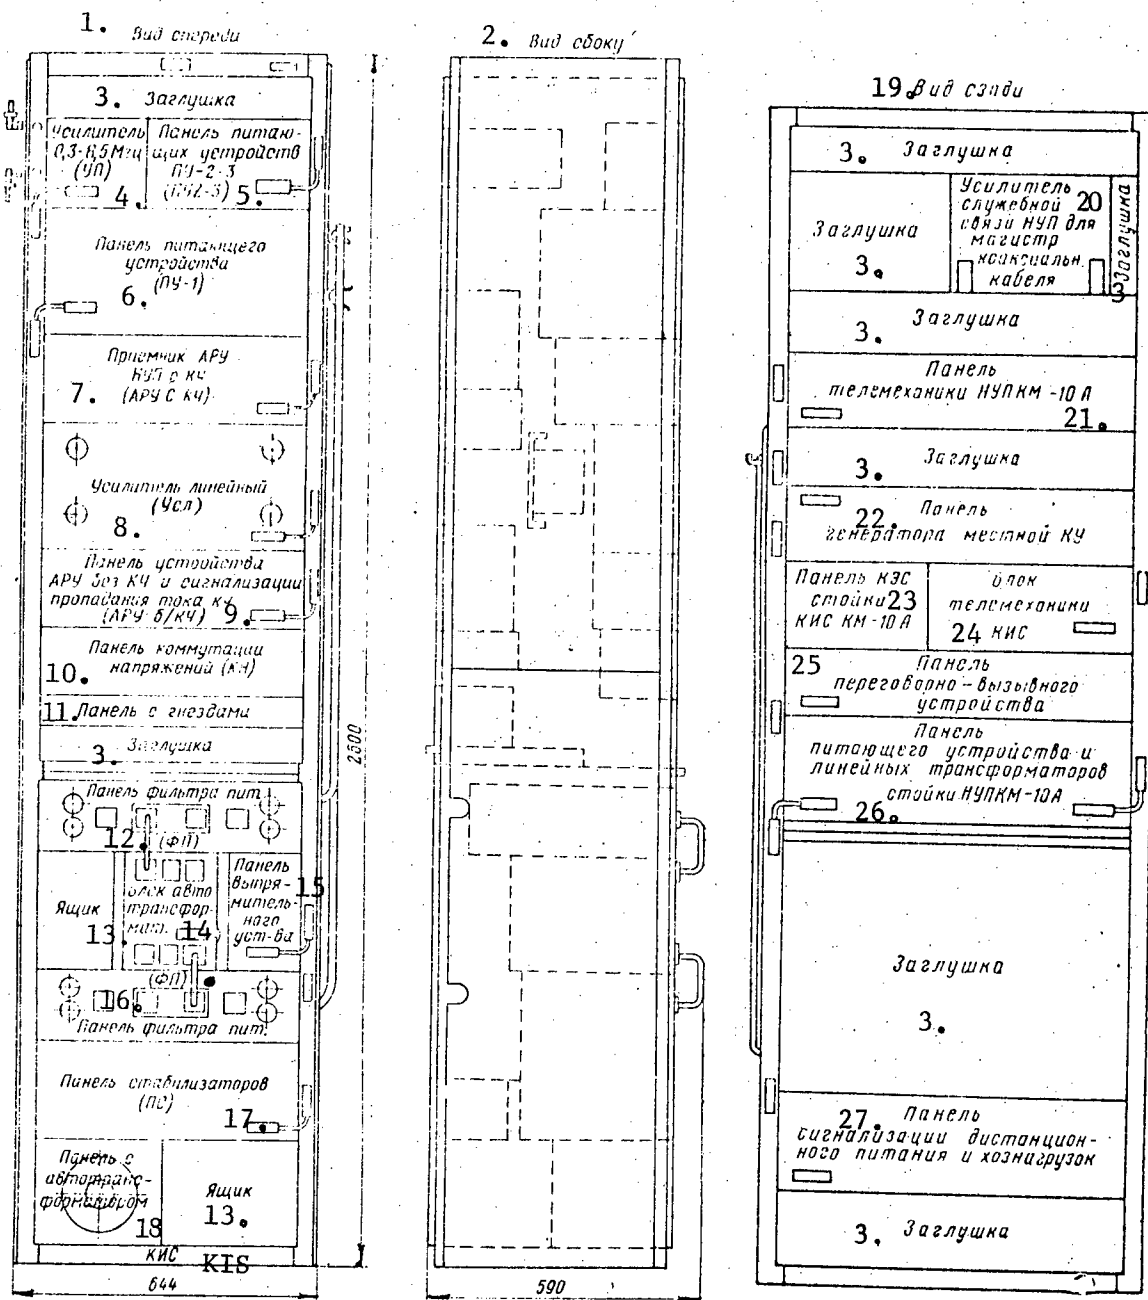 1. Вид спереди
3. Заглушка
Усилитель
0,3-8,5 Мгц
(УП)
4.
Панель питаю-
щих устройств
ПУ-2-3
(ПУ2-3) 5.
Панель питающего
устройства
(ПУ-1)
6.
Приемник АРУ
НУП с КЧ
7. (АРУ С КЧ)
Усилитель линейный
(Усл)
8.
Панель устройства
АРУ без КЧ и сигнализации
пропадания тока кч
(АРУ б/кч) 9.
Панель коммутации
10. напряжений (КН)
11. Панель с гнездами
3. Заглушка
Панель фильтра пит.
12. (ФП)
Ящик
13.
Блок авто
трансфор-
мат.
14
Панель
выпря- 15
мительн-
ного
уст-ва
(ФП)
16.
Панель фильтра пит.
Панель стабилизаторов
(ПС)
17.
Панель с
автотранс-
форматором
18
Ящик
13.
КИС KIS
644
2600
2. Вид сбоку
590
19. Вид сзади
3. Заглушка
Заглушка
3.
Усилитель
служебной 20
связи НУП для
магистр
коаксиальн.
кабеля
Заглушка
3
Заглушка
3.
Панель
телемеханики НУПКМ-10А
21.
3. Заглушка
22. Панель
генератора местной КУ
Панель КЭС
стойки 23
КИС КМ-10А
блок
телемеханики
24 КИС
25 Панель
переговорно-вызывного
устройства
Панель
питающего устройства и
линейных трансформаторов
стойки НУПКМ-10А
26.
Заглушка
3.
27. Панель
сигнализации дистанцион-
ного питания и хознагрузок
3. Заглушка